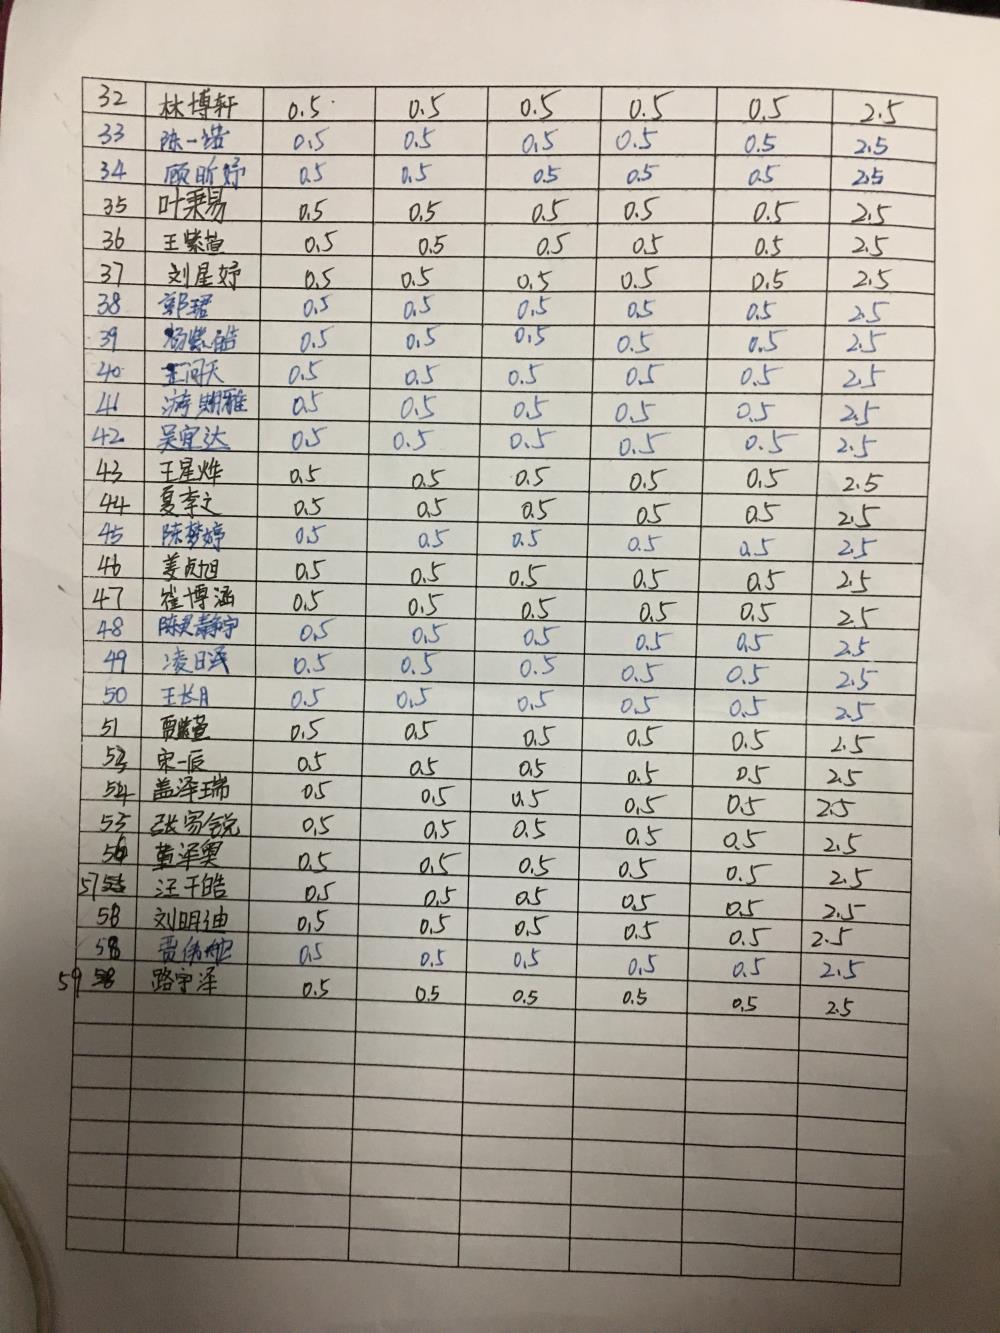 32 林博轩 0.5 0.5 0.5 0.5 0.5 2.5
33 陈一诺 0.5 0.5 0.5 0.5 0.5 2.5
34 顾昕妤 0.5 0.5 0.5 0.5 0.5 2.5
35 叶秉易 0.5 0.5 0.5 0.5 0.5 2.5
36 王紫萱 0.5 0.5 0.5 0.5 0.5 2.5
37 刘星妤 0.5 0.5 0.5 0.5 0.5 2.5
38 郭珺 0.5 0.5 0.5 0.5 0.5 2.5
39 杨紫皓 0.5 0.5 0.5 0.5 0.5 2.5
40 王问天 0.5 0.5 0.5 0.5 0.5 2.5
41 游雅 0.5 0.5 0.5 0.5 0.5 2.5
42 吴宜达 0.5 0.5 0.5 0.5 0.5 2.5
43 王星烨 0.5 0.5 0.5 0.5 0.5 2.5
44 夏李之 0.5 0.5 0.5 0.5 0.5 2.5
45 陈梦婷 0.5 0.5 0.5 0.5 0.5 2.5
46 姜贞旭 0.5 0.5 0.5 0.5 0.5 2.5
47 崔博涵 0.5 0.5 0.5 0.5 0.5 2.5
48 陈灵静宇 0.5 0.5 0.5 0.5 0.5 2.5
49 凌日 0.5 0.5 0.5 0.5 0.5 2.5
50 王长月 0.5 0.5 0.5 0.5 0.5 2.5
51 贾紫萱 0.5 0.5 0.5 0.5 0.5 2.5
53 宋一辰 0.5 0.5 0.5 0.5 0.5 2.5
54 盖泽瑞 0.5 0.5 0.5 0.5 0.5 2.5
55 张家锐 0.5 0.5 0.5 0.5 0.5 2.5
56 董泽奥 0.5 0.5 0.5 0.5 0.5 2.5
57 汪千皓 0.5 0.5 0.5 0.5 0.5 2.5
58 刘明迪 0.5 0.5 0.5 0.5 0.5 2.5
58 贾 0.5 0.5 0.5 0.5 0.5 2.5
59 路宇泽 0.5 0.5 0.5 0.5 0.5 2.5